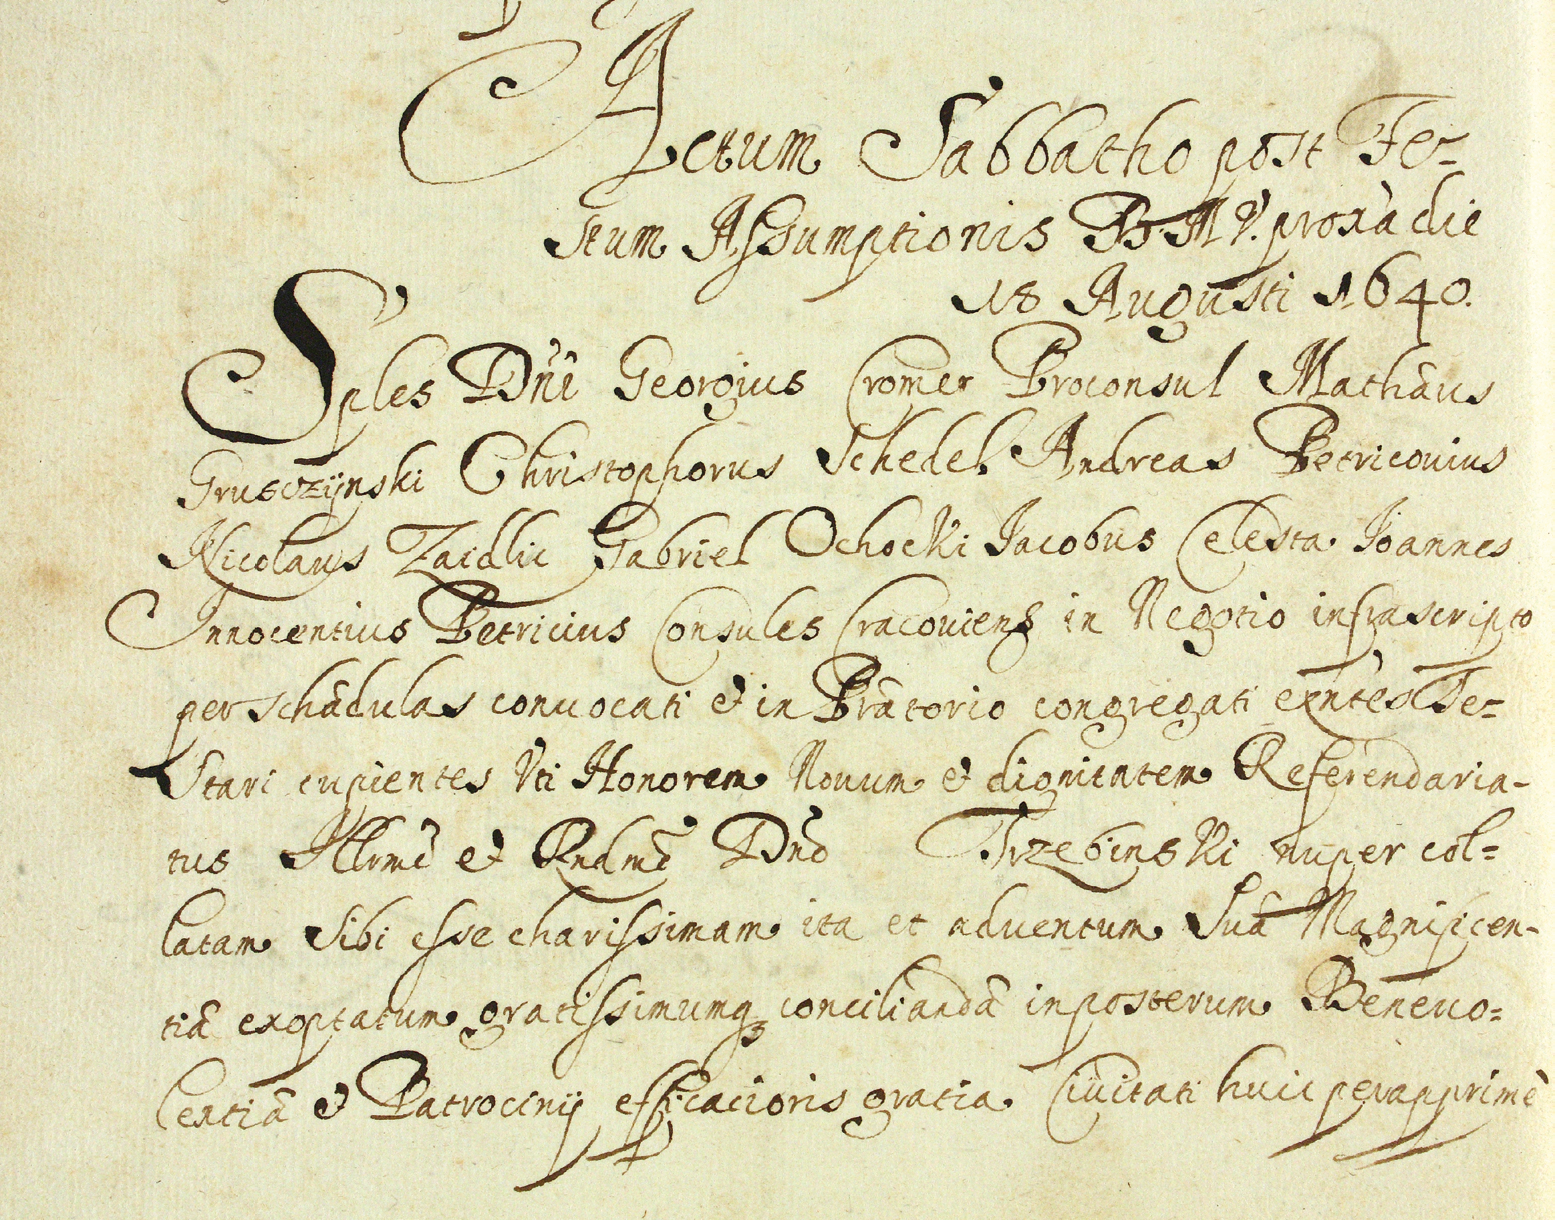 Actum Sabbatho post Fe-
stum Assumptionis B M V. proxã die
18 Augusti 1640.
Sples Dñi Georgius Cromer Proconsul Mathæus
Grusczÿnski Christophorus Schedel Andreas Petricouius
Nicolaus Zaidlic Gabriel Ochocki Jacobus Celesta Joannes
Innocentius Petricius Consules Cracouiens in Negotio infrascripto
per schædulas conuocati et in Prætorio congregati exñtes Te-
stari cupientes Vti Honorem Nouum et dignitatem Referendaria-
tus Illrmo et Rndmo Dño Trzebinski nuper col-
latam sibi esse charissimam ita et aduentum Suæ Magnificen-
tiæ exoptatum gratissimumq conciliandæ inposterum Beneuo-
lentiæ et Patrocinij efficacioris gratia Ciuitati huic perapprimè